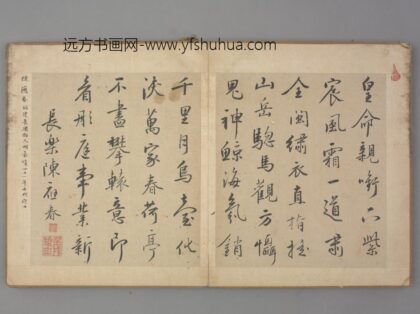 远方书画网-www.yfshuhua.com
皇命親啣下紫
宸風霜一道肅
全閩繡衣直指搖
山岳驄馬觀方懾
鬼神鯨海氣銷
千里月烏臺化
浹萬家春荷亭
不盡攀轅意即
看彤庭事業新
長樂陳
春